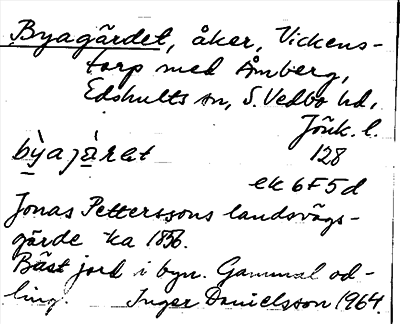 Byagärdet, åker, Vickens-
torp med Åmberg,
Edshults sn, S. Vedbo hd,
Jönk. l.
bỳajàrat 128
ek 6F5d
Jonas Petterssons landsvägs-
gärde ka 1856.
Bäst jord i byn. Gammal od-
ling. Inger Danielsson 1964.